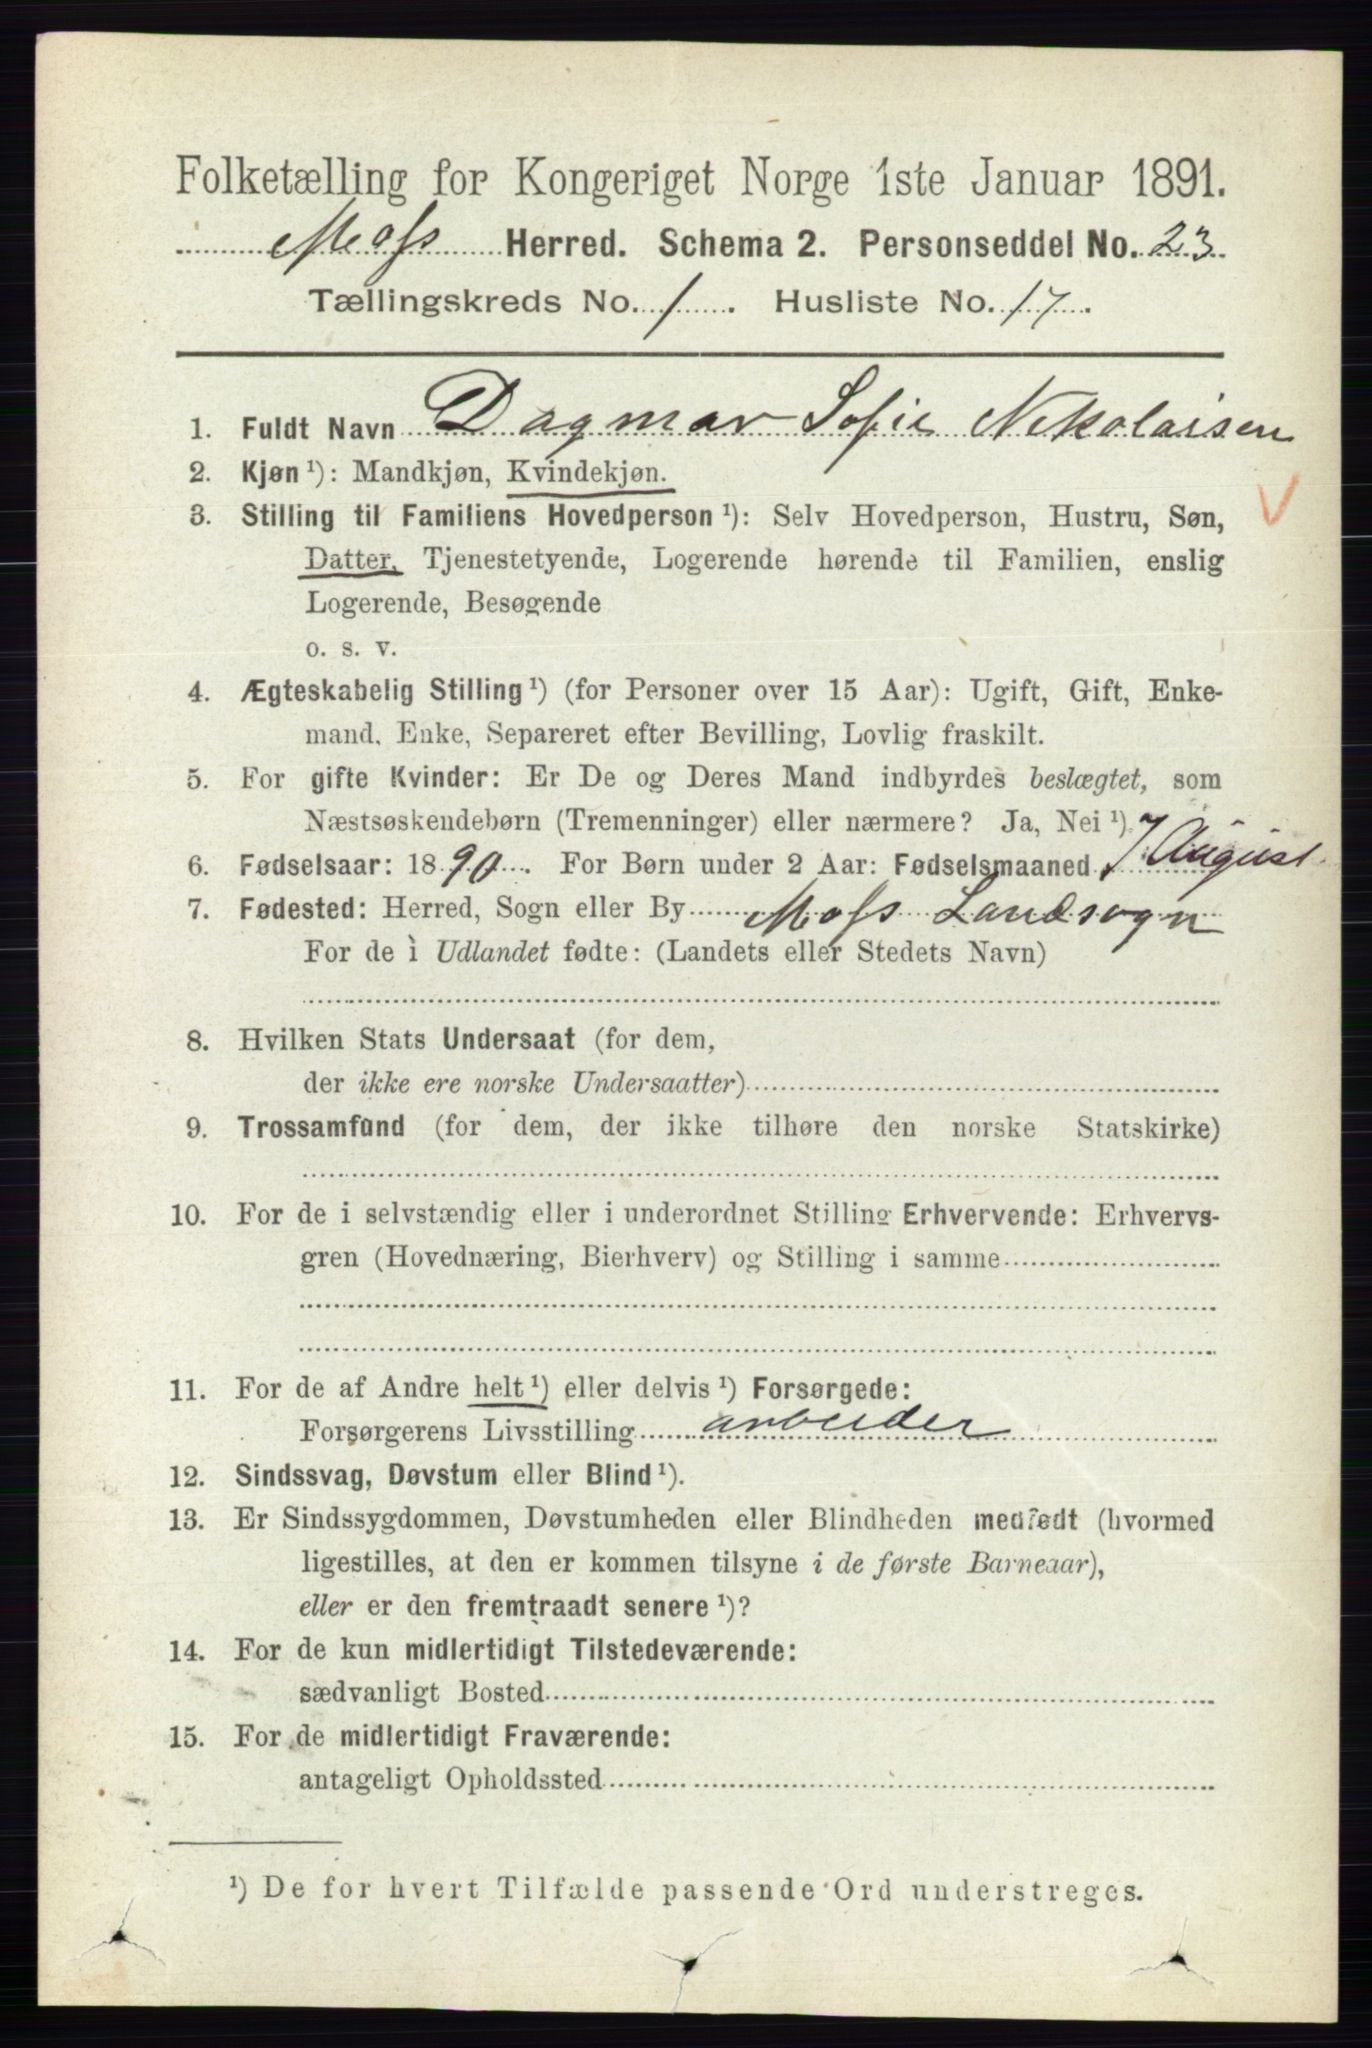 Folketælling for Kongeriget Norge 1ste Januar 1891.
Moss Herred. Schema 2. Personseddel No. 23
Tællingskreds No. 1. Husliste No. 17.
1. Fuldt Navn Dagmar Sofie Nikolaisen
2. Kjøn ¹): Mandkjøn, Kvindekjøn.
V
3. Stilling til Familiens Hovedperson ¹): Selv Hovedperson, Hustru, Søn,
Datter, Tjenestetyende, Logerende hørende til Familien, enslig
Logerende, Besøgende
o. s. v.
4. Ægteskabelig Stilling ¹) (for Personer over 15 Aar): Ugift, Gift, Enke-
mand, Enke, Separeret efter Bevilling, Lovlig fraskilt.
5. For gifte Kvinder: Er De og Deres Mand indbyrdes beslægtet, som
Næstsøskendebørn (Tremenninger) eller nærmere? Ja, Nei ¹).
6. Fødselsaar: 1890. For Børn under 2 Aar: Fødselsmaaned 7 August
7. Fødested: Herred, Sogn eller By Moss Landsogn
For de i Udlandet fødte: (Landets eller Stedets Navn)
8. Hvilken Stats Undersaat (for dem,
der ikke ere norske Undersaatter)
9. Trossamfund (for dem, der ikke tilhøre den norske Statskirke)
10. For de i selvstændig eller i underordnet Stilling Erhvervende: Erhvervs-
gren (Hovednæring, Bierhverv) og Stilling i samme
11. For de af Andre helt ¹) eller delvis ¹) Forsørgede:
Forsørgerens Livsstilling arbeider
12. Sindssvag, Døvstum eller Blind ¹).
13. Er Sindssygdommen, Døvstumheden eller Blindheden medfødt (hvormed
ligestilles, at den er kommen tilsyne i de første Barneaar),
eller er den fremtraadt senere ¹)?
14. For de kun midlertidigt Tilstedeværende:
sædvanligt Bosted
15. For de midlertidigt Fraværende:
antageligt Opholdssted
¹) De for hvert Tilfælde passende Ord understreges.